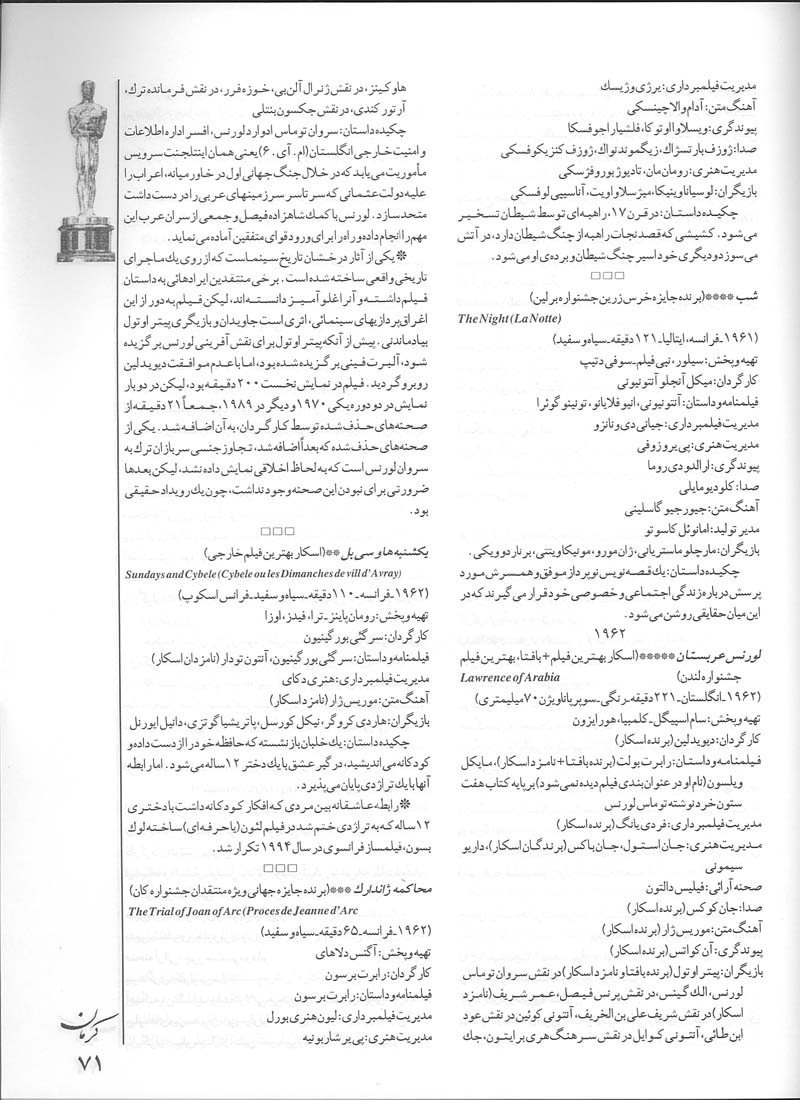 مدیریت فیلمبرداری: یرژی وژیسك
آهنگ متن: آدام والاچینسكی
پیوندگری: ویسلاوا اوتوكا، فلشیار اجوفسكا
صدا: ژوزف بارتسژاك، زیگموند نواك، ژوزف كنزیكوفسكی
مدیریت هنری: رومان مان، تادیوژ بوروفژسكی
بازیگران: لوسیانا وینیكا، میژسلاو اویت، آناسیپی لوفسكی
چكیده داستان: در قرن ۱۷، راهبه‌ای توسط شیطان تسخیر
می‌شود. كشیشی كه قصد نجات راهبه از چنگ شیطان دارد، در آتش
می‌سوزد و دیگری خود اسیر چنگ شیطان و برده‌ی او می‌شود.
□□□
شب **** (برنده جایزه خرس زرین جشنواره برلین)
The Night (La Notte)
(۱۹۶۱ـ فرانسه، ایتالیا ـ ۱۲۱ دقیقه ـ سیاه و سفید)
تهیه و پخش: سیلور، نبی فیلم ـ سوفی دتیپ
كارگردان: میكل آنجلو آنتونیونی
فیلمنامه و داستان: آنتونیونی، انیو فلایانو، تونینو گوئرا
مدیریت فیلمبرداری: جیانی دی ونانزو
مدیریت هنری: پی‌یر وزوفی
پیوندگری: ارالدو دی روما
صدا: كلودیو مایلی
آهنگ متن: جیورجیو گاسلینی
مدیر تولید: امانوئل كاسوتو
بازیگران: مارچلو ماستریانی، ژان مورو، مونیكا ویتتی، برنارد و ویكی.
چكیده داستان: یك قصه‌نویس نوپرداز موفق و همسرش مورد
پرسش درباره زندگی اجتماعی و خصوصی خود قرار می‌گیرند كه در
این میان حقایقی روشن می‌شود.
۱۹۶۲
لورنس عربستان ***** (اسكار بهترین فیلم + بافتا، بهترین فیلم
جشنواره لندن) Lawrence of Arabia
(۱۹۶۲ـ انگلستان ـ ۲۲۱ دقیقه ـ رنگی ـ سوپر پاناویژن ۷۰ میلیمتری)
تهیه و پخش: سام اسپیگل ـ كلمبیا، هورایزون
كارگردان: دیوید لین (برنده اسكار)
فیلمنامه و داستان: رابرت بولت (برنده بافتا + نامزد اسكار)، مایكل
ویلسون (نام او در عنوان‌بندی فیلم دیده نمی‌شود) بر پایه كتاب هفت
ستون خرد نوشته توماس لورنس
مدیریت فیلمبرداری: فردی یانگ (برنده اسكار)
مدیریت هنری: جان استول، جان باكس (برندگان اسكار)، داریو
سیمونی
صحنه آرائی: فیلیس دالتون
صدا: جان كوكس (برنده اسكار)
آهنگ متن: موریس ژار (برنده اسكار)
پیوندگری: آن كواتس (برنده اسكار)
بازیگران: پیتر اوتول (برنده بافتا و نامزد اسكار) در نقش سروان توماس
لورنس، الك گینس، در نقش پرنس فیصل، عمر شریف (نامزد
اسكار) در نقش شریف علی بن الخریف، آنتونی كوئین در نقش عود
ابن طائی، آنتونی كوایل در نقش سرهنگ هری برایتون، جك
هاوكینز، در نقش ژنرال آلن‌بی، خوزه فرر، در نقش فرمانده ترك،
آرتور كندی، در نقش جكسون بنتلی
چكیده داستان: سروان توماس ادوارد لورنس، افسر اداره اطلاعات
و امنیت خارجی انگلستان (ام. آی. ۶) یعنی همان اینتلجنت سرویس
مأموریت می‌یابد كه در خلال جنگ جهانی اول در خاورمیانه، اعراب را
علیه دولت عثمانی كه سرتاسر سرزمینهای عربی را در دست داشت
متحد سازد. لورنس با كمك شاهزاده فیصل و جمعی از سران عرب این
مهم را انجام داده و راه را برای ورود قوای متفقین آماده می‌نماید.
* یكی از آثار درخشان تاریخ سینماست كه از روی یك ماجرای
تاریخی واقعی ساخته شده است. برخی منتقدین ایرادهائی به داستان
فیلم داشته و آنرا غلوآمیز دانسته‌اند، لیكن فیلم به دور از این
اغراق پردازیهای سینمائی، اثری است جاویدان و بازیگری پیتر اوتول
بیادماندنی. پیش از آنكه پیتر اوتول برای نقش آفرینی لورنس برگزیده
شود، آلبرت فینی برگزیده شده بود، اما با عدم موافقت دیوید لین
روبرو گردید. فیلم در نمایش نخست ۲۰۰ دقیقه بود، لیكن در دوبار
نمایش در دو دوره یكی ۱۹۷۰ و دیگر در ۱۹۸۹، جمعاً ۲۱ دقیقه از
صحنه‌های حذف شده توسط كارگردان، به آن اضافه شد. یكی از
صحنه‌های حذف شده كه بعداً اضافه شد، تجاوز جنسی سربازان ترك به
سروان لورنس است كه به لحاظ اخلاقی نمایش داده نشد، لیكن بعدها
ضرورتی برای نبودن این صحنه وجود نداشت، چون یك رویداد حقیقی
بود.
□□□
یكشنبه‌ها و سی‌بل ** (اسكار بهترین فیلم خارجی)
Sundays and Cybele (Cybele ou les Dimanches de vill d'Avray)
(۱۹۶۲ـ فرانسه ـ ۱۱۰ دقیقه ـ سیاه و سفید ـ فرانس اسكوپ)
تهیه و پخش: رومان پاینز ـ ترا، فیدز، اوزا
كارگردان: سرگئی بورگینیون
فیلمنامه و داستان: سرگئی بورگینیون، آنتون تودار (نامزدان اسكار)
مدیریت فیلمبرداری: هنری دكای
آهنگ متن: موریس ژار (نامزد اسكار)
بازیگران: هاردی كروگر، نیكل كورسل، پاتریشیا گوتزی، دانیل ایورنل
چكیده داستان: یك خلبان بازنشسته كه حافظه خود را از دست داده و
كودكانه می‌اندیشید، درگیر عشق با یك دختر ۱۲ ساله می‌شود. اما رابطه
آنها با یك تراژدی پایان می‌پذیرد.
* رابطه عاشقانه بین مردی كه افكار كودكانه داشت با دختری
۱۲ ساله كه به تراژدی ختم شد در فیلم لئون (یا حرفه‌ای) ساخته لوك
بسون، فیلمساز فرانسوی در سال ۱۹۹۴ تكرار شد.
□□□
محاكمه ژاندارك *** (برنده جایزه جهانی ویژه منتقدان جشنواره كان)
The Trial of Joan of Arc (Proces de Jeanne d'Arc
(۱۹۶۲ـ فرانسه ـ ۶۵ دقیقه ـ سیاه و سفید)
تهیه و پخش: آگنس دلاهای
كارگردان: رابرت برسون
فیلمنامه و داستان: رابرت برسون
مدیریت فیلمبرداری: لیون هنری بورل
مدیریت هنری: پی‌یر شاربونیه
كرمان
۷۱